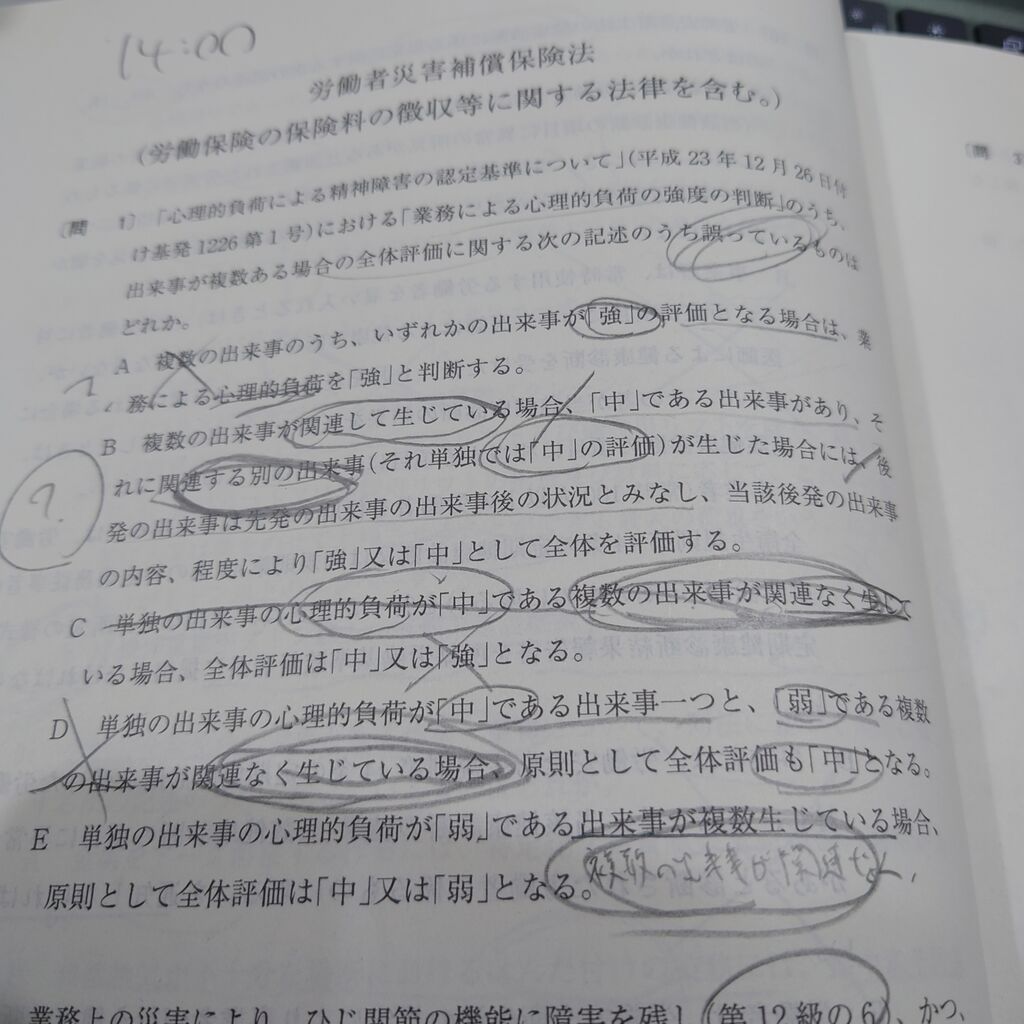 14:00
労働者災害補償保険法
(労働保険の保険料の徴収等に関する法律を含む。)
〔問 1〕 「心理的負荷による精神障害の認定基準について」(平成23年12月26日付
け基発1226第1号)における「業務による心理的負荷の強度の判断」のうち、
出来事が複数ある場合の全体評価に関する次の記述のうち誤っているものは
どれか。
A 複数の出来事のうち、いずれかの出来事が「強」の評価となる場合は、業
務による心理的負荷を「強」と判断する。
B 複数の出来事が関連して生じている場合、「中」である出来事があり、そ
れに関連する別の出来事(それ単独では「中」の評価)が生じた場合には、後
発の出来事は先発の出来事の出来事後の状況とみなし、当該後発の出来事
?
の内容、程度により「強」又は「中」として全体を評価する。
C 単独の出来事の心理的負荷が「中」である複数の出来事が関連なく生じて
いる場合、全体評価は「中」又は「強」となる。
D 単独の出来事の心理的負荷が「中」である出来事一つと、「弱」である複数
の出来事が関連なく生じている場合、原則として全体評価も「中」となる。
E 単独の出来事の心理的負荷が「弱」である出来事が複数生じている場合、
原則として全体評価は「中」又は「弱」となる。
複数の出来事が関連なく、
業務上の災害により、ひじ関節の機能に障害を残し(第12級の6)、かつ、
〔問 3